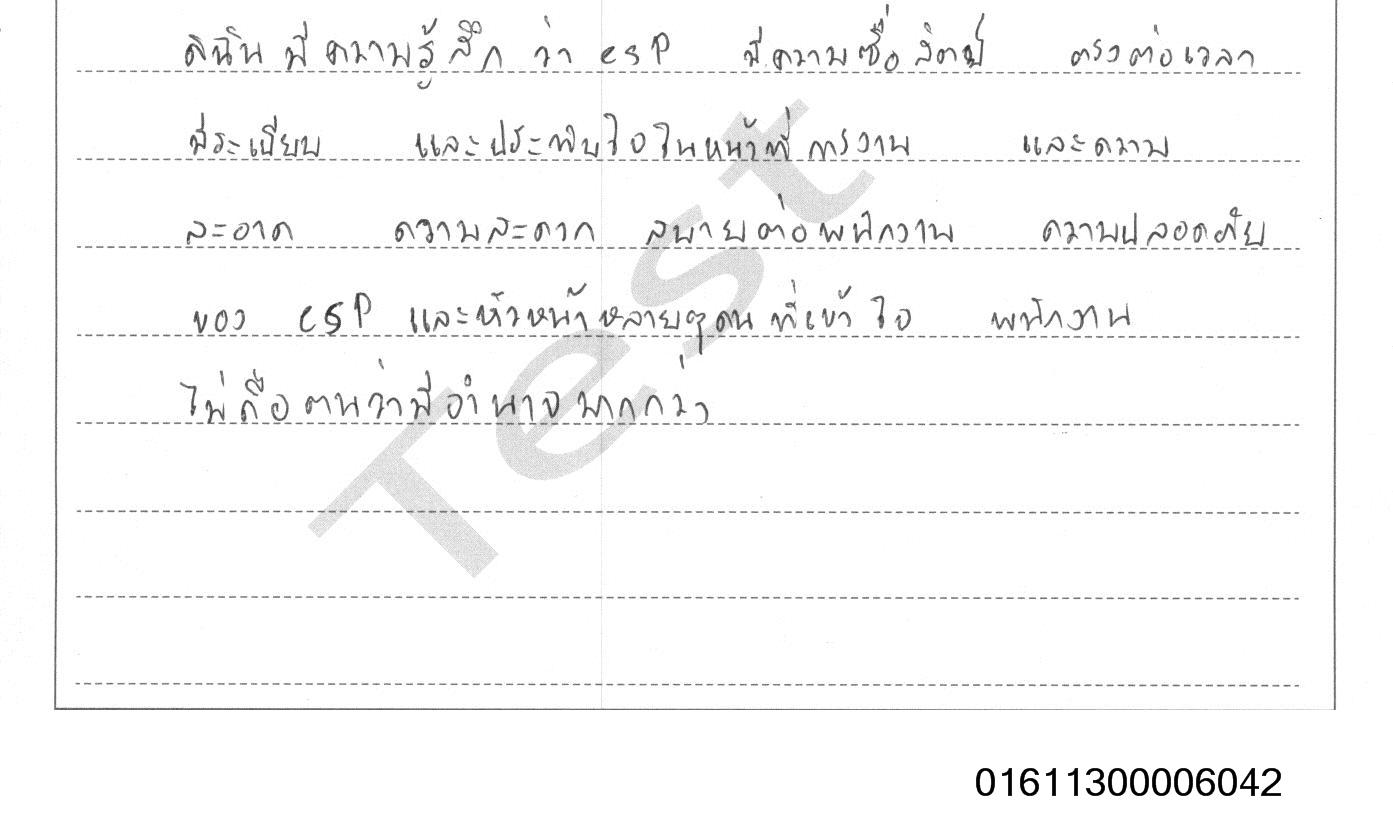 ดิฉันมีความรู้สึกว่า esp มีความซื่อสัตย์ ตรงต่อเวลา
มีระเบียบ และประทับใจในหน้าที่การงาน และความ
สะอาด ความสะดวก สบายต่อพนักงาน ความปลอดภัย
ของ esp และหัวหน้าหลายๆคนที่เข้าใจ พนักงาน
ไม่ถือตนว่ามีอำนาจมากกว่า
Test
01611300006042